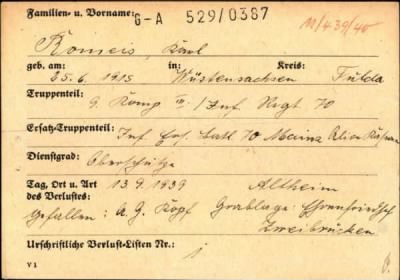 Familien- u. Vorname: G-A 529/0387 11/439/40
Romeis, Karl
geb. am: in: Kreis:
25.6.1915 Wüstensachsen Fulda
Truppenteil:
9. Komp III./Inf. Regt 70
Ersatz-Truppenteil:
Inf. Ers. Batl. 70 Mainz
Dienstgrad:
Oberschütze
Tag, Ort u. Art 13.9.1939 Altheim
des Verlustes:
Gefallen: A.G. Kopf Grablage: Ehrenfriedhof
Zweibrücken
Urschriftliche Verlust-Listen Nr.: 1
V 1